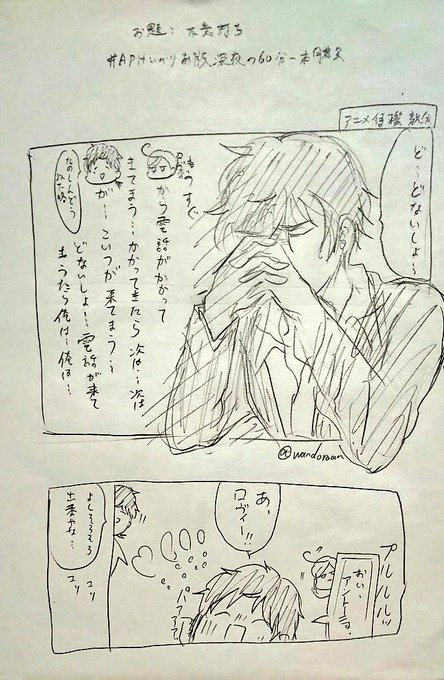 お題: 不意打ち
#APHいべりあ版深夜の60分一本勝負
アニメ伊 親分
ど…どないしよ…
もうすぐ
から電話がかかって
きてまう…かかってきたら次は…次は
が…こいつが来てまう…
どないしよ…電話が来て
もうたら俺は…俺は…
@wandoraan
プルルルッ
おい、
アントーニョ
あ、
ロヴィー!!
パアアア
よしそろそろ
出番やな…
コソ
コソ